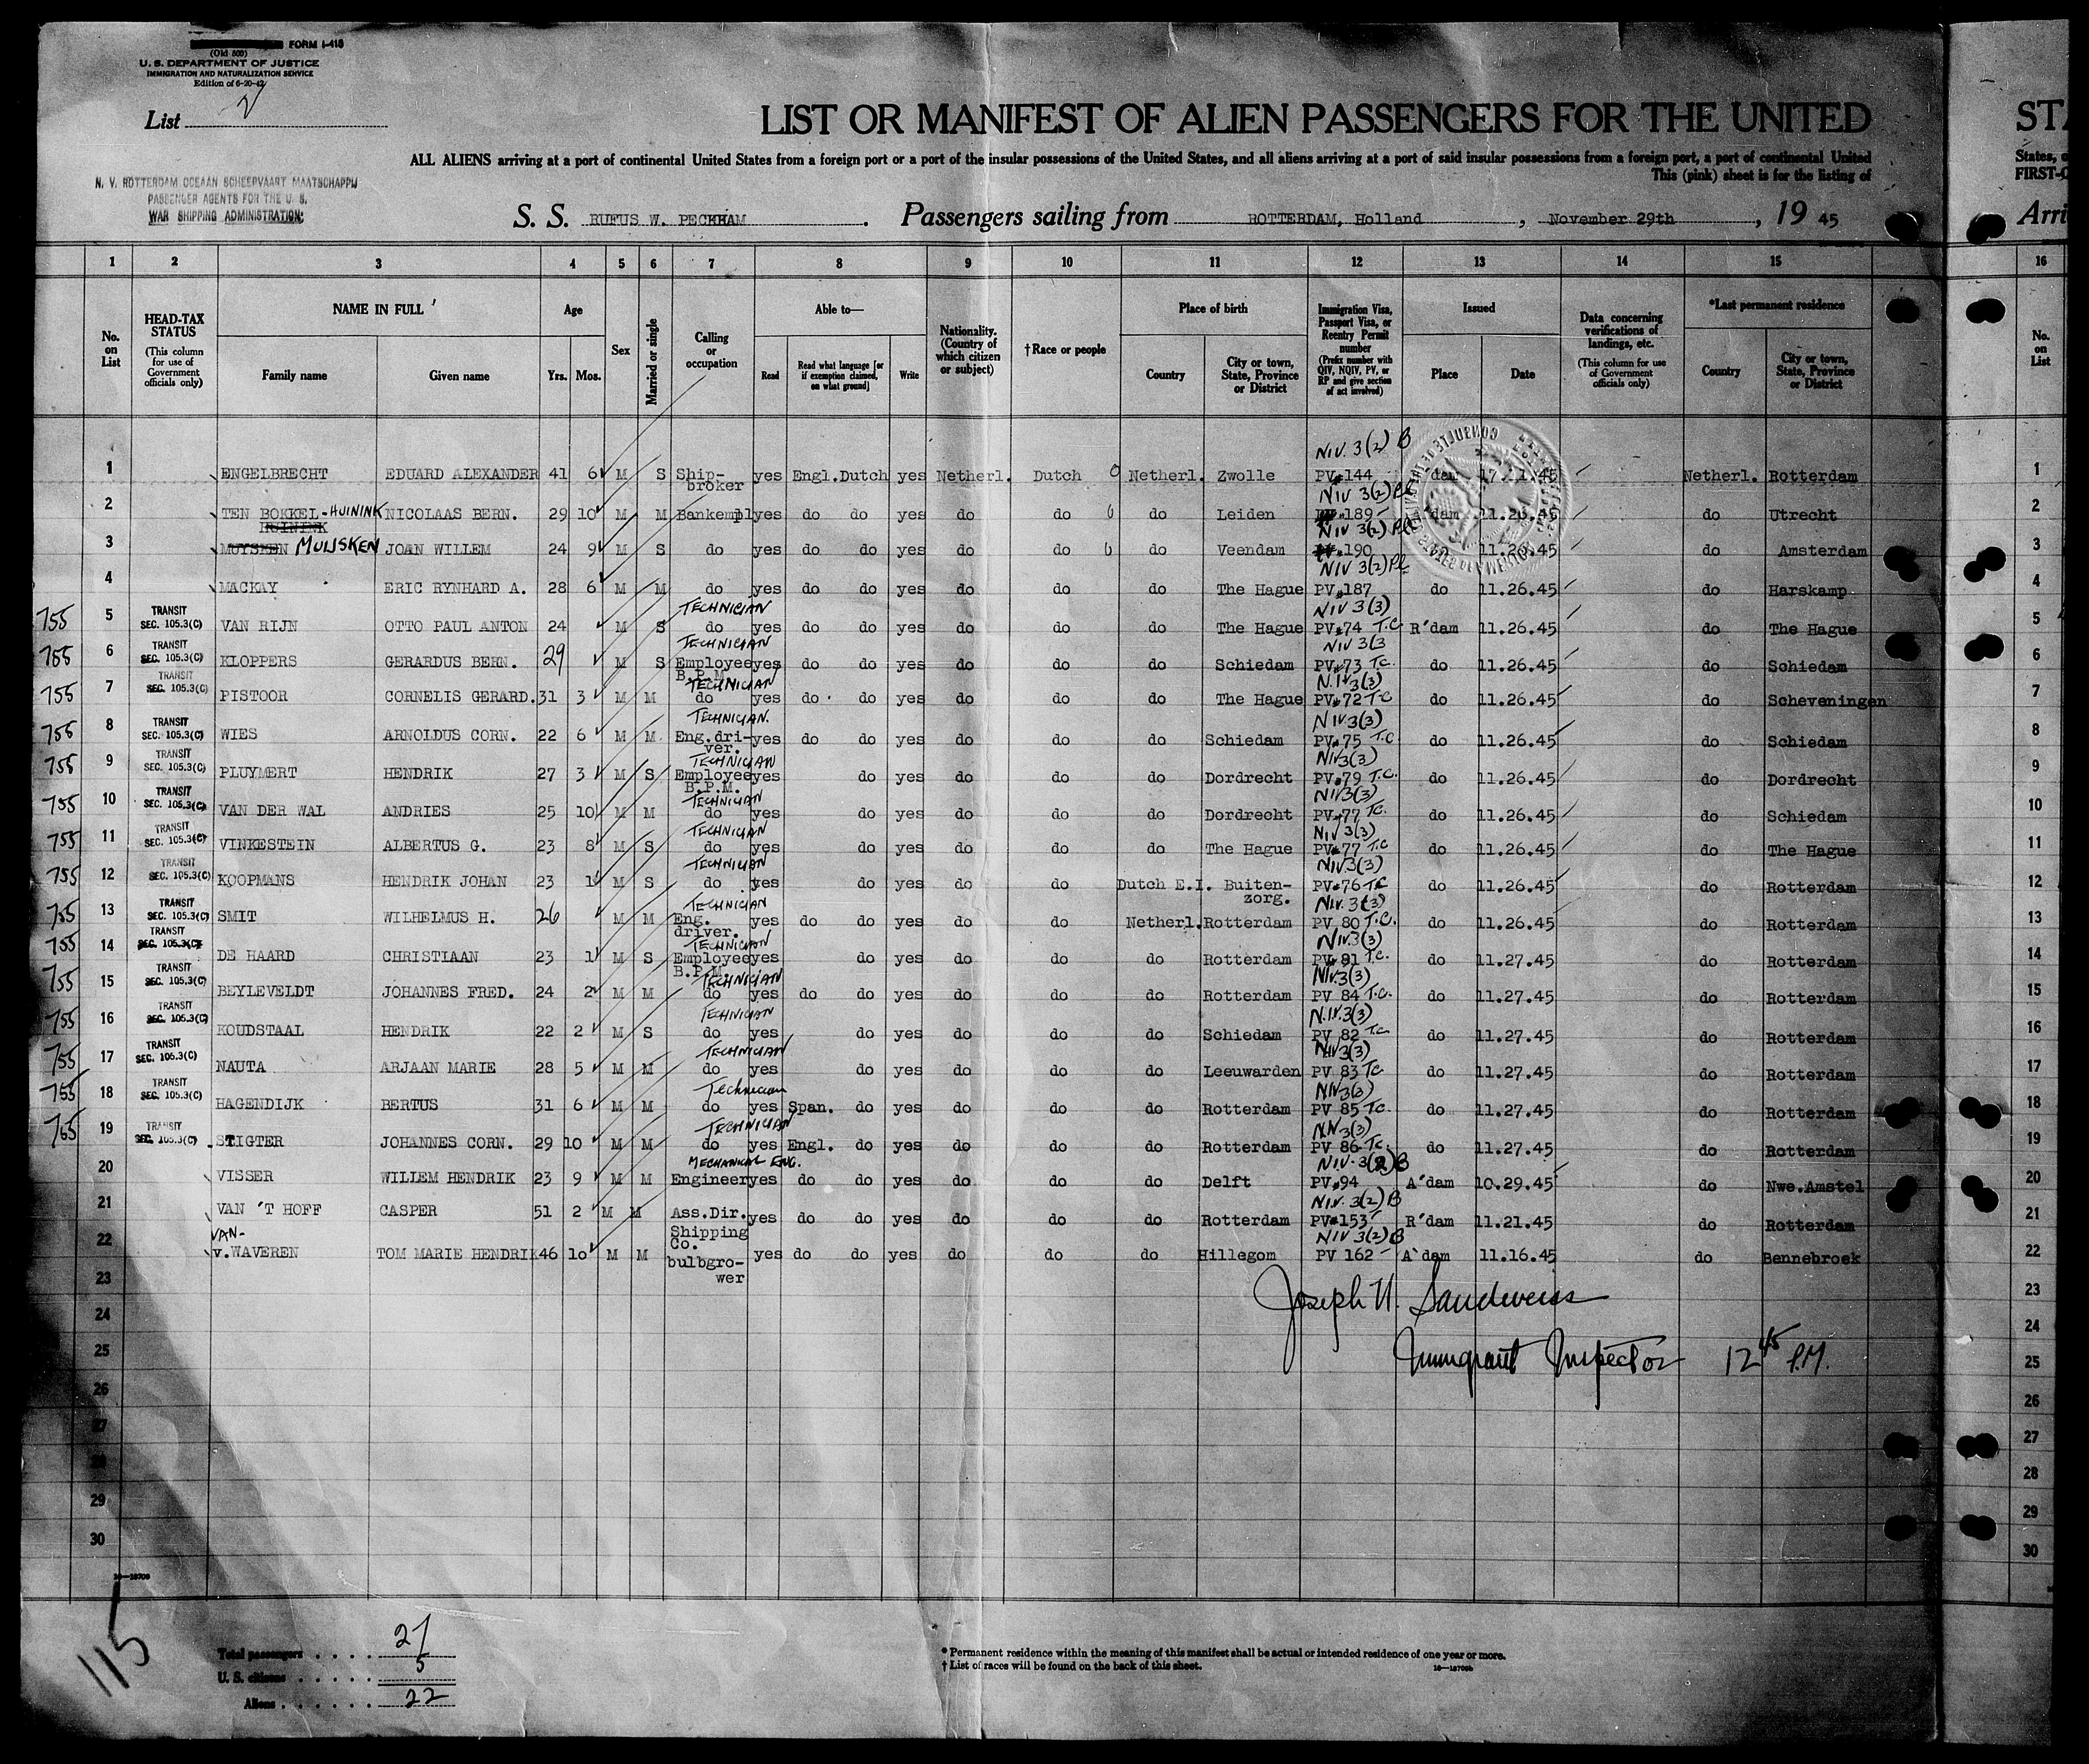 FORM I-415
(Old 500)
U. S. DEPARTMENT OF JUSTICE
IMMIGRATION AND NATURALIZATION SERVICE
Edition of 6-20-42
List 2
LIST OR MANIFEST OF ALIEN PASSENGERS FOR THE UNITED
STA
ALL ALIENS arriving at a port of continental United States from a foreign port or a port of the insular possessions of the United States, and all aliens arriving at a port of said insular possessions from a foreign port, a port of continental United
States, o
This (pink) sheet is for the listing of
FIRST-C
N. V. ROTTERDAM OCEAAN SCHEEPVAART MAATSCHAPPIJ
PASSENGER AGENTS FOR THE U. S.
WAR SHIPPING ADMINISTRATION:
S. S. RUFUS W. PECKHAM. Passengers sailing from ROTTERDAM, Holland, November 29th, 19 45
Arri
1 2 3 4 5 6 7 8 9 10 11 12 13 14 15 16
No. on List
HEAD-TAX STATUS (This column for use of Government officials only)
NAME IN FULL Family name Given name
Age Yrs. Mos.
Sex
Married or single
Calling or occupation
Able to— Read Read what language [or if exemption claimed, on what ground] Write
Nationality. (Country of which citizen or subject)
† Race or people
Place of birth Country City or town, State, Province or District
Immigration Visa, Passport Visa, or Reentry Permit number (Prefix number with QIV, NQIV, PV, or RP and give section of act involved)
Issued Place Date
Data concerning verifications of landings, etc. (This column for use of Government officials only)
*Last permanent residence Country City or town, State, Province or District
No. on List
NIV. 3(2) B
1 ENGELBRECHT EDUARD ALEXANDER 41 6 M S Ship-broker yes Engl. Dutch yes Netherl. Dutch Netherl. Zwolle PV#144 dam 17.11.45 Netherl. Rotterdam 1
NIV 3(2) Pl
2 TEN BOKKEL-HUININK HUININK NICOLAAS BERN. 29 10 M M Bankempl yes do do yes do do do Leiden 189 dam 11.26.45 do Utrecht 2
NIV 3(2) Pl
3 MUYSKEN MUIJSKEN JOAN WILLEM 24 9 M S do yes do do yes do do do Veendam 190 11.26.45 do Amsterdam 3
NIV 3(2) Pl
4 MACKAY ERIC RYNHARD A. 28 6 M M do yes do do yes do do do The Hague PV#187 11.26.45 do Harskamp 4
TECHNICIAN NIV 3(3)
755 5 TRANSIT SEC. 105.3(C) VAN RIJN OTTO PAUL ANTON 24 M S do yes do do yes do do do The Hague PV#74 T.C. R'dam 11.26.45 do The Hague 5
TECHNICIAN NIV 3(3
755 6 TRANSIT SEC. 105.3(C) KLOPPERS GERARDUS BERN. 29 M S Employee B.P.M. yes do do yes do do do Schiedam PV#73 T.C. do 11.26.45 do Schiedam 6
TECHNICIAN N.IV3(3)
755 7 TRANSIT SEC. 105.3(C) PISTOOR CORNELIS GERARD. 31 3 M M do yes do do yes do do do The Hague PV#72 T.C do 11.26.45 do Scheveningen 7
TECHNICIAN. NIV3(3)
755 8 TRANSIT SEC. 105.3(C) WIES ARNOLDUS CORN. 22 6 M M Eng.dri-ver. yes do do yes do do do Schiedam PV#75 T.C. do 11.26.45 do Schiedam 8
TECHNICIAN NIV3(3)
755 9 TRANSIT SEC. 105.3(C) PLUYMERT HENDRIK 27 3 M S Employee B.P.M. yes do yes do do do Dordrecht PV#79 T.C. do 11.26.45 do Dordrecht 9
TECHNICIAN NIV3(3)
755 10 TRANSIT SEC. 105.3(C) VAN DER WAL ANDRIES 25 10 M M do yes do yes do do do Dordrecht PV#77 T.C. do 11.26.45 do Schiedam 10
TECHNICIAN NIV 3(3)
755 11 TRANSIT SEC. 105.3(C) VINKESTEIN ALBERTUS G. 23 8 M S do yes do yes do do do The Hague PV#77 T.C do 11.26.45 do The Hague 11
TECHNICIAN NIV3(3)
755 12 TRANSIT SEC. 105.3(C) KOOPMANS HENDRIK JOHAN 23 1 M S do yes do yes do do Dutch E.I. Buiten-zorg. PV#76 T.C do 11.26.45 do Rotterdam 12
TECHNICIAN NIV. 3(3)
755 13 TRANSIT SEC. 105.3(C) SMIT WILHELMUS H. 26 M M Eng. driver. yes do do yes do do Netherl. Rotterdam PV 80 T.C. do 11.26.45 do Rotterdam 13
TECHNICIAN NIV.3(3)
755 14 TRANSIT SEC. 105.3(C) DE HAARD CHRISTIAAN 23 1 M S Employee B.P.M. yes do yes do do do Rotterdam PV#81 T.C. do 11.27.45 do Rotterdam 14
TECHNICIAN NIV.3(3)
755 15 TRANSIT SEC. 105.3(C) BEYLEVELDT JOHANNES FRED. 24 2 M M do yes do do yes do do do Rotterdam PV 84 T.C. do 11.27.45 do Rotterdam 15
TECHNICIAN N.IV.3(3)
755 16 TRANSIT SEC. 105.3(C) KOUDSTAAL HENDRIK 22 2 M S do yes do yes do do do Schiedam PV 82 T.C do 11.27.45 do Rotterdam 16
TECHNICIAN NIV3(3)
755 17 TRANSIT SEC. 105.3(C) NAUTA ARJAAN MARIE 28 5 M M do yes do yes do do do Leeuwarden PV 83 TC do 11.27.45 do Rotterdam 17
Technician NIV3(3)
755 18 TRANSIT SEC. 105.3(C) HAGENDIJK BERTUS 31 6 M M do yes Span. do yes do do do Rotterdam PV 85 T.C. do 11.27.45 do Rotterdam 18
TECHNICIAN NIV3(3)
755 19 TRANSIT SEC. 105.3(C) STIGTER JOHANNES CORN. 29 10 M M do yes Engl. do yes do do do Rotterdam PV 86 T.C. do 11.27.45 do Rotterdam 19
MECHANICAL ENG. NIV-3(2)B
20 VISSER WILLEM HENDRIK 23 9 M M Engineer yes do do yes do do do Delft PV#94 A'dam 10.29.45 do Nwe.Amstel 20
NIV. 3(2) B
21 VAN 'T HOFF CASPER 51 2 M M Ass.Dir. Shipping Co. yes do do yes do do do Rotterdam PV#153 R'dam 11.21.45 do Rotterdam 21
VAN- NIV 3(2) B
22 v.WAVEREN TOM MARIE HENDRIK 46 10 M M bulbgro-wer yes do do yes do do do Hillegom PV 162 A'dam 11.16.45 do Bennebroek 22
23 23
Joseph H. Sandweiss
24 24
Immigrant Inspector 12 45 P.M.
25 25
26 26
27 27
28 28
29 29
30 30
16—18706
115
Total passengers 27
U. S. citizens 5
Aliens 22
* Permanent residence within the meaning of this manifest shall be actual or intended residence of one year or more.
† List of races will be found on the back of this sheet.
16—18706b